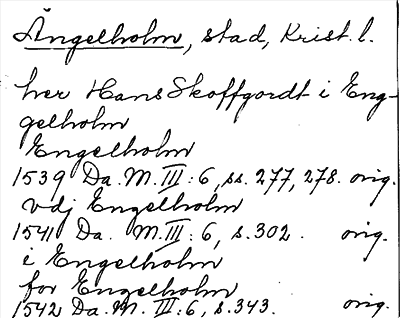 Ängelholm, stad, Krist. l.
her Hans Skoffgordt i Eng-
gelholm
Engelholm
1539 Da. M. III: 6, ss. 277, 278. orig.
vdj Engelholm
1541 Da. M. III: 6, s. 302. orig.
i Engelholm
for Engelholm
1542 Da. M. III: 6, s. 343. orig.